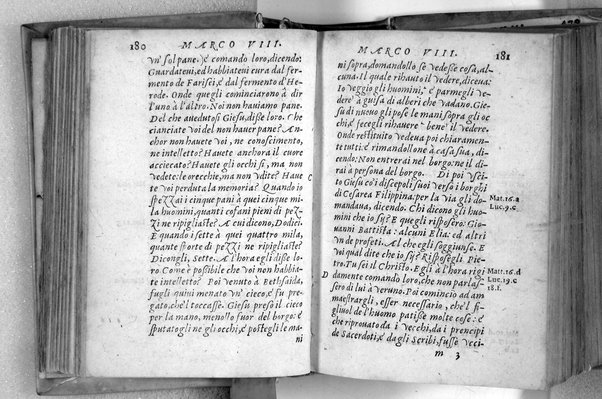 180 MARCO VIII.
vn' sol pane. )é comando loro, dicendo:
Guardateui, ed habbiateui cura dal fer-
mento de Farisei, é dal fermento d'He-
rode. Onde quegli cominciarono á dir
l'uno à l'altro. Noi non hauiamo pane.
Del che auedutosi Giesù, disse loro. Che
cianciate voi del non hauer pane? An-
chor non hauete voi, ne conoscimento,
ne intelletto? Hauete anchora il cuore
accieccato? Hauete gli occhi sì, ma non
vedete: le orecchie, ma non vdite? Haue
te voi perduta la memoria? Quando io
spezzai i cinque pani à quei cinque mi-
la huomini, quanti cofani pieni di pez-
zi ne ripigliaste? A cui dicono, Dodici.
E quando i sette à quei quattro mila,
quante sporte di pezzi ne ripigliaste?
Dicongli, Sette. A l'hora egli disse lo-
ro. Come è possibile che voi non habbia-
te intelletto? Poi venuto à Bethsaida,
fugli quiui menato vn' cieco, é fu pre-
gato, che'l toccasse. Giesu preso il cieco
per la mano, menollo fuor del borgo: é
sputatogli ne gli occhi, é postegli le ma-
ni
MARCO VIII. 181
ni sopra, domandollo se vedesse cosa, al-
cuna. Il quale rihauto il vedere, dicena:
Io veggio gli huomini, é parmegli ve-
dere à guisa di alberi che vadano. Gie-
sù di nuouo gli pose le mani sopra gli oc
chi, é fecegli rihauere bene il vedere.
Onde restituito vedeua poi chiaramen-
te tutti: é rimandollone à casa sua, di-
cendo: Non entrerai nel borgo: ne il di-
rai à persona del borgo. Di poi vsci-
to Giesu có i discepoli suoi verso i borghi
di Cesarea Filippina: per la via gli do-
mandaua, dicendo. Chi dicono gli huo-
mini che io sij? E quegli risposero: Gio-
uanni Battista: alcuni Elia: ed altri
vn de profeti. Al che egli soggiunse. E
voi qual dite che io sij? Rispose gli Pie-
tro. Tu sei il Christo. Egli à l'hora rigi
damente comando loro, che non parlas-
sero di lui à veruno. Poi cominciò ad am
maestrargli, esser necessario, che'l fi-
gliuol de l'huomo patisse molte cose: é
che riprouato da i vecchi, da i principi
de Sacerdoti, é dagli Scribi, fusse vcci-
m 3
C
Mat. 16.a
Luc. 9.c
Matt. 16.d
Luc. 19.c
18.f.
D